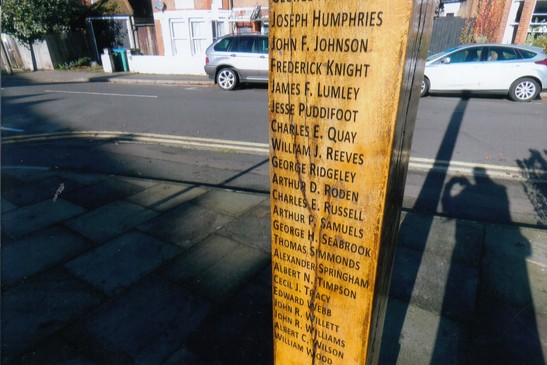 JOSEPH HUMPHRIES
JOHN F. JOHNSON
FREDERICK KNIGHT
JAMES F. LUMLEY
JESSE PUDDIFOOT
CHARLES E. QUAY
WILLIAM J. REEVES
GEORGE RIDGELEY
ARTHUR D. RODEN
CHARLES E. RUSSELL
ARTHUR P. SAMUELS
GEORGE H. SEABROOK
THOMAS SIMMONDS
ALEXANDER SPRINGHAM
ALBERT N. TIMPSON
CECIL J. TRACY
EDWARD WEBB
JOHN R. WILLETT
JOHN R. WILLIAMS
ALBERT C. WILSON
WILLIAM WOOD